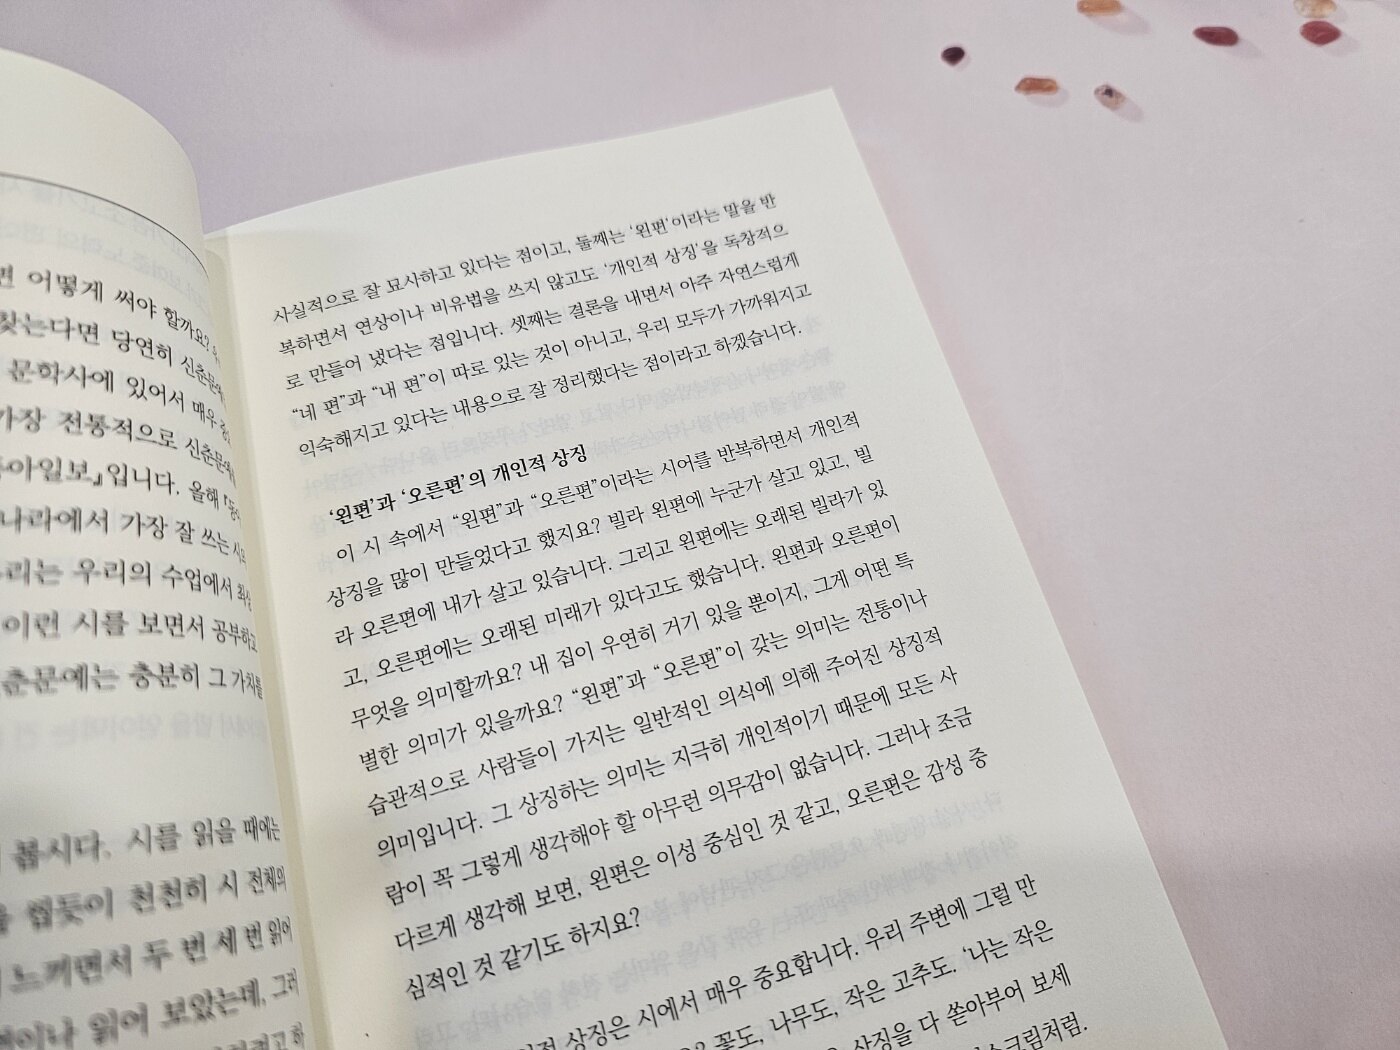 편 어떻게 써야 할까요?
찾는다면 당연히 신춘문예
문학사에 있어서 매우
가장 전통적으로 신춘문예
동아일보』입니다. 올해 『동아
나라에서 가장 잘 쓰는 시의
우리는 우리의 수업에서
이런 시를 보면서 공부하고
춘문예는 충분히 그 가치를
봅시다. 시를 읽을 때에는
씹듯이 천천히 시 전체의
느끼면서 두 번 세 번 읽어
읽어 보았는데, 그러
사실적으로 잘 묘사하고 있다는 점이고, 둘째는 ‘왼편’이라는 말을 반
복하면서 연상이나 비유법을 쓰지 않고도 ‘개인적 상징’을 독창적으
로 만들어 냈다는 점입니다. 셋째는 결론을 내면서 아주 자연스럽게
“네 편”과 “내 편”이 따로 있는 것이 아니고, 우리 모두가 가까워지고
익숙해지고 있다는 내용으로 잘 정리했다는 점이라고 하겠습니다.
‘왼편’과 ‘오른편’의 개인적 상징
이 시 속에서 “왼편”과 “오른편”이라는 시어를 반복하면서 개인적
상징을 많이 만들었다고 했지요? 빌라 왼편에 누군가 살고 있고, 빌
라 오른편에 내가 살고 있습니다. 그리고 왼편에는 오래된 빌라가 있
고, 오른편에는 오래된 미래가 있다고도 했습니다. 왼편과 오른편이
무엇을 의미할까요? 내 집이 우연히 거기 있을 뿐이지, 그게 어떤 특
별한 의미가 있을까요? “왼편”과 “오른편”이 갖는 의미는 전통이나
습관적으로 사람들이 가지는 일반적인 의식에 의해 주어진 상징적
의미입니다. 그 상징하는 의미는 지극히 개인적이기 때문에 모든 사
람이 꼭 그렇게 생각해야 할 아무런 의무감이 없습니다. 그러나 조금
다르게 생각해 보면, 왼편은 이성 중심인 것 같고, 오른편은 감성 중
심적인 것 같기도 하지요?
상징은 시에서 매우 중요합니다. 우리 주변에 그럴 만
꽃도, 나무도, 작은 고추도. ‘나는 작은
상징을 다 쏟아부어 보세
스크림처럼.